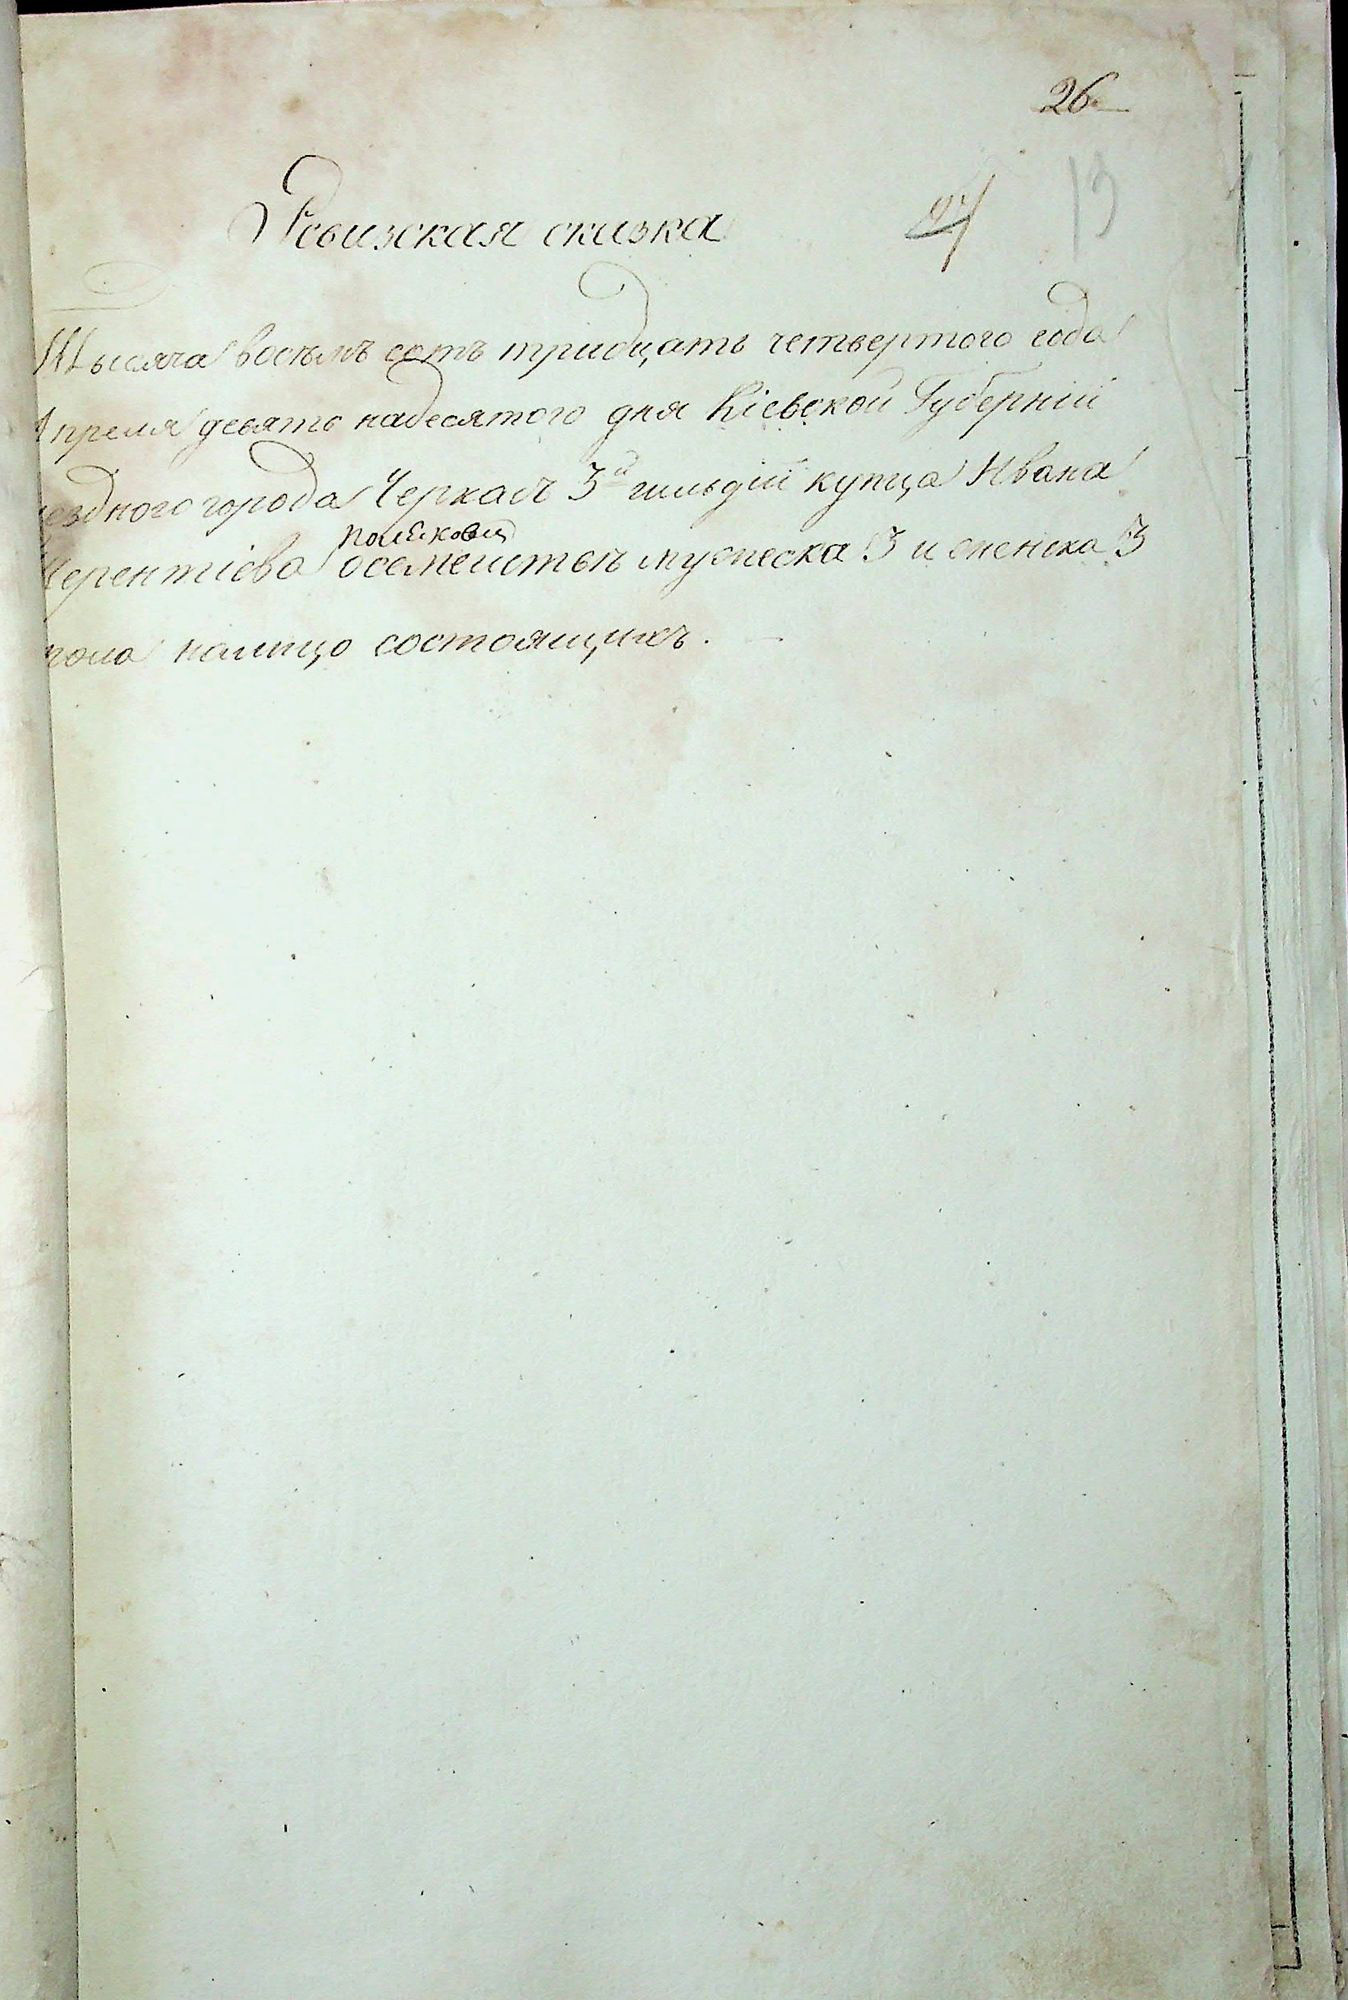 26
Ревизская сказка
24 13
Тысяча восемь сотъ тридцать четвертого года
Апреля девять надесятого дня Кіевской Губерніи
уездного города Черкасъ 3й гильдіи купца Ивана
Терентіева осемействѣ мужеска 3 и женска 3
пола налицо состоящихъ.